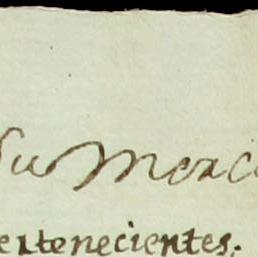 Su Merc
ertenecientes.